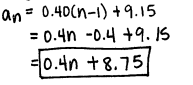 aₙ = 0.40(n-1) + 9.15
= 0.4n - 0.4 + 9.15
= 0.4n + 8.75